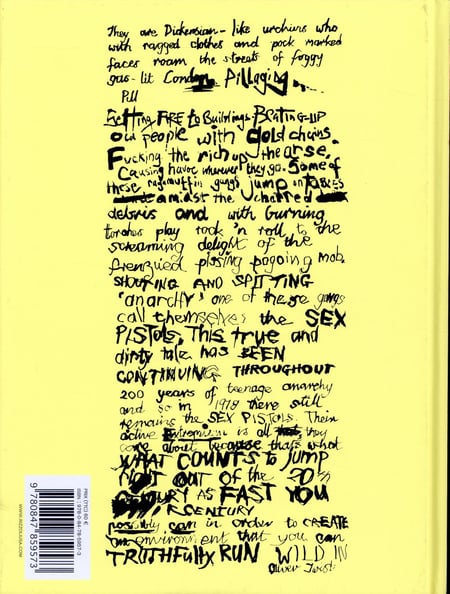 They are Dickensian - like urchins who
with ragged clothes and pock marked
faces roam the streets of foggy
gas-lit London Pillaging.
Pill
Setting FIRE to Buildings. BEATING-UP
Old people with Gold chains.
Fucking the rich up the arse.
Causing havoc wherever they go. Some of
these ragamuffin gangs jump on TABLES
amidst the charred
debris and with burning
torches play rock 'n roll to the
screaming delight of the
frenzied pissing pogoing mob.
SHOUTING AND SPITTING
'anarchy' one of these gangs
call themselves the SEX
PISTOLS. This true and
dirty tale has BEEN
CONTINUING THROUGHOUT
200 years of teenage anarchy
and so in 1978 there still
remains the SEX PISTOLS. Their
active extremism is all they
care about because thats what
WHAT COUNTS to JUMP
OUT OF THE 20th
CENTURY AS FAST YOU
CENTURY
possibly can in order to CREATE
an environment that you can
TRUTHFULLY RUN WILD IN
Oliver Twist
ISBN: 978-0-84-78-5957-3
9 780847 859573
WWW.RIZZOLIUSA.COM